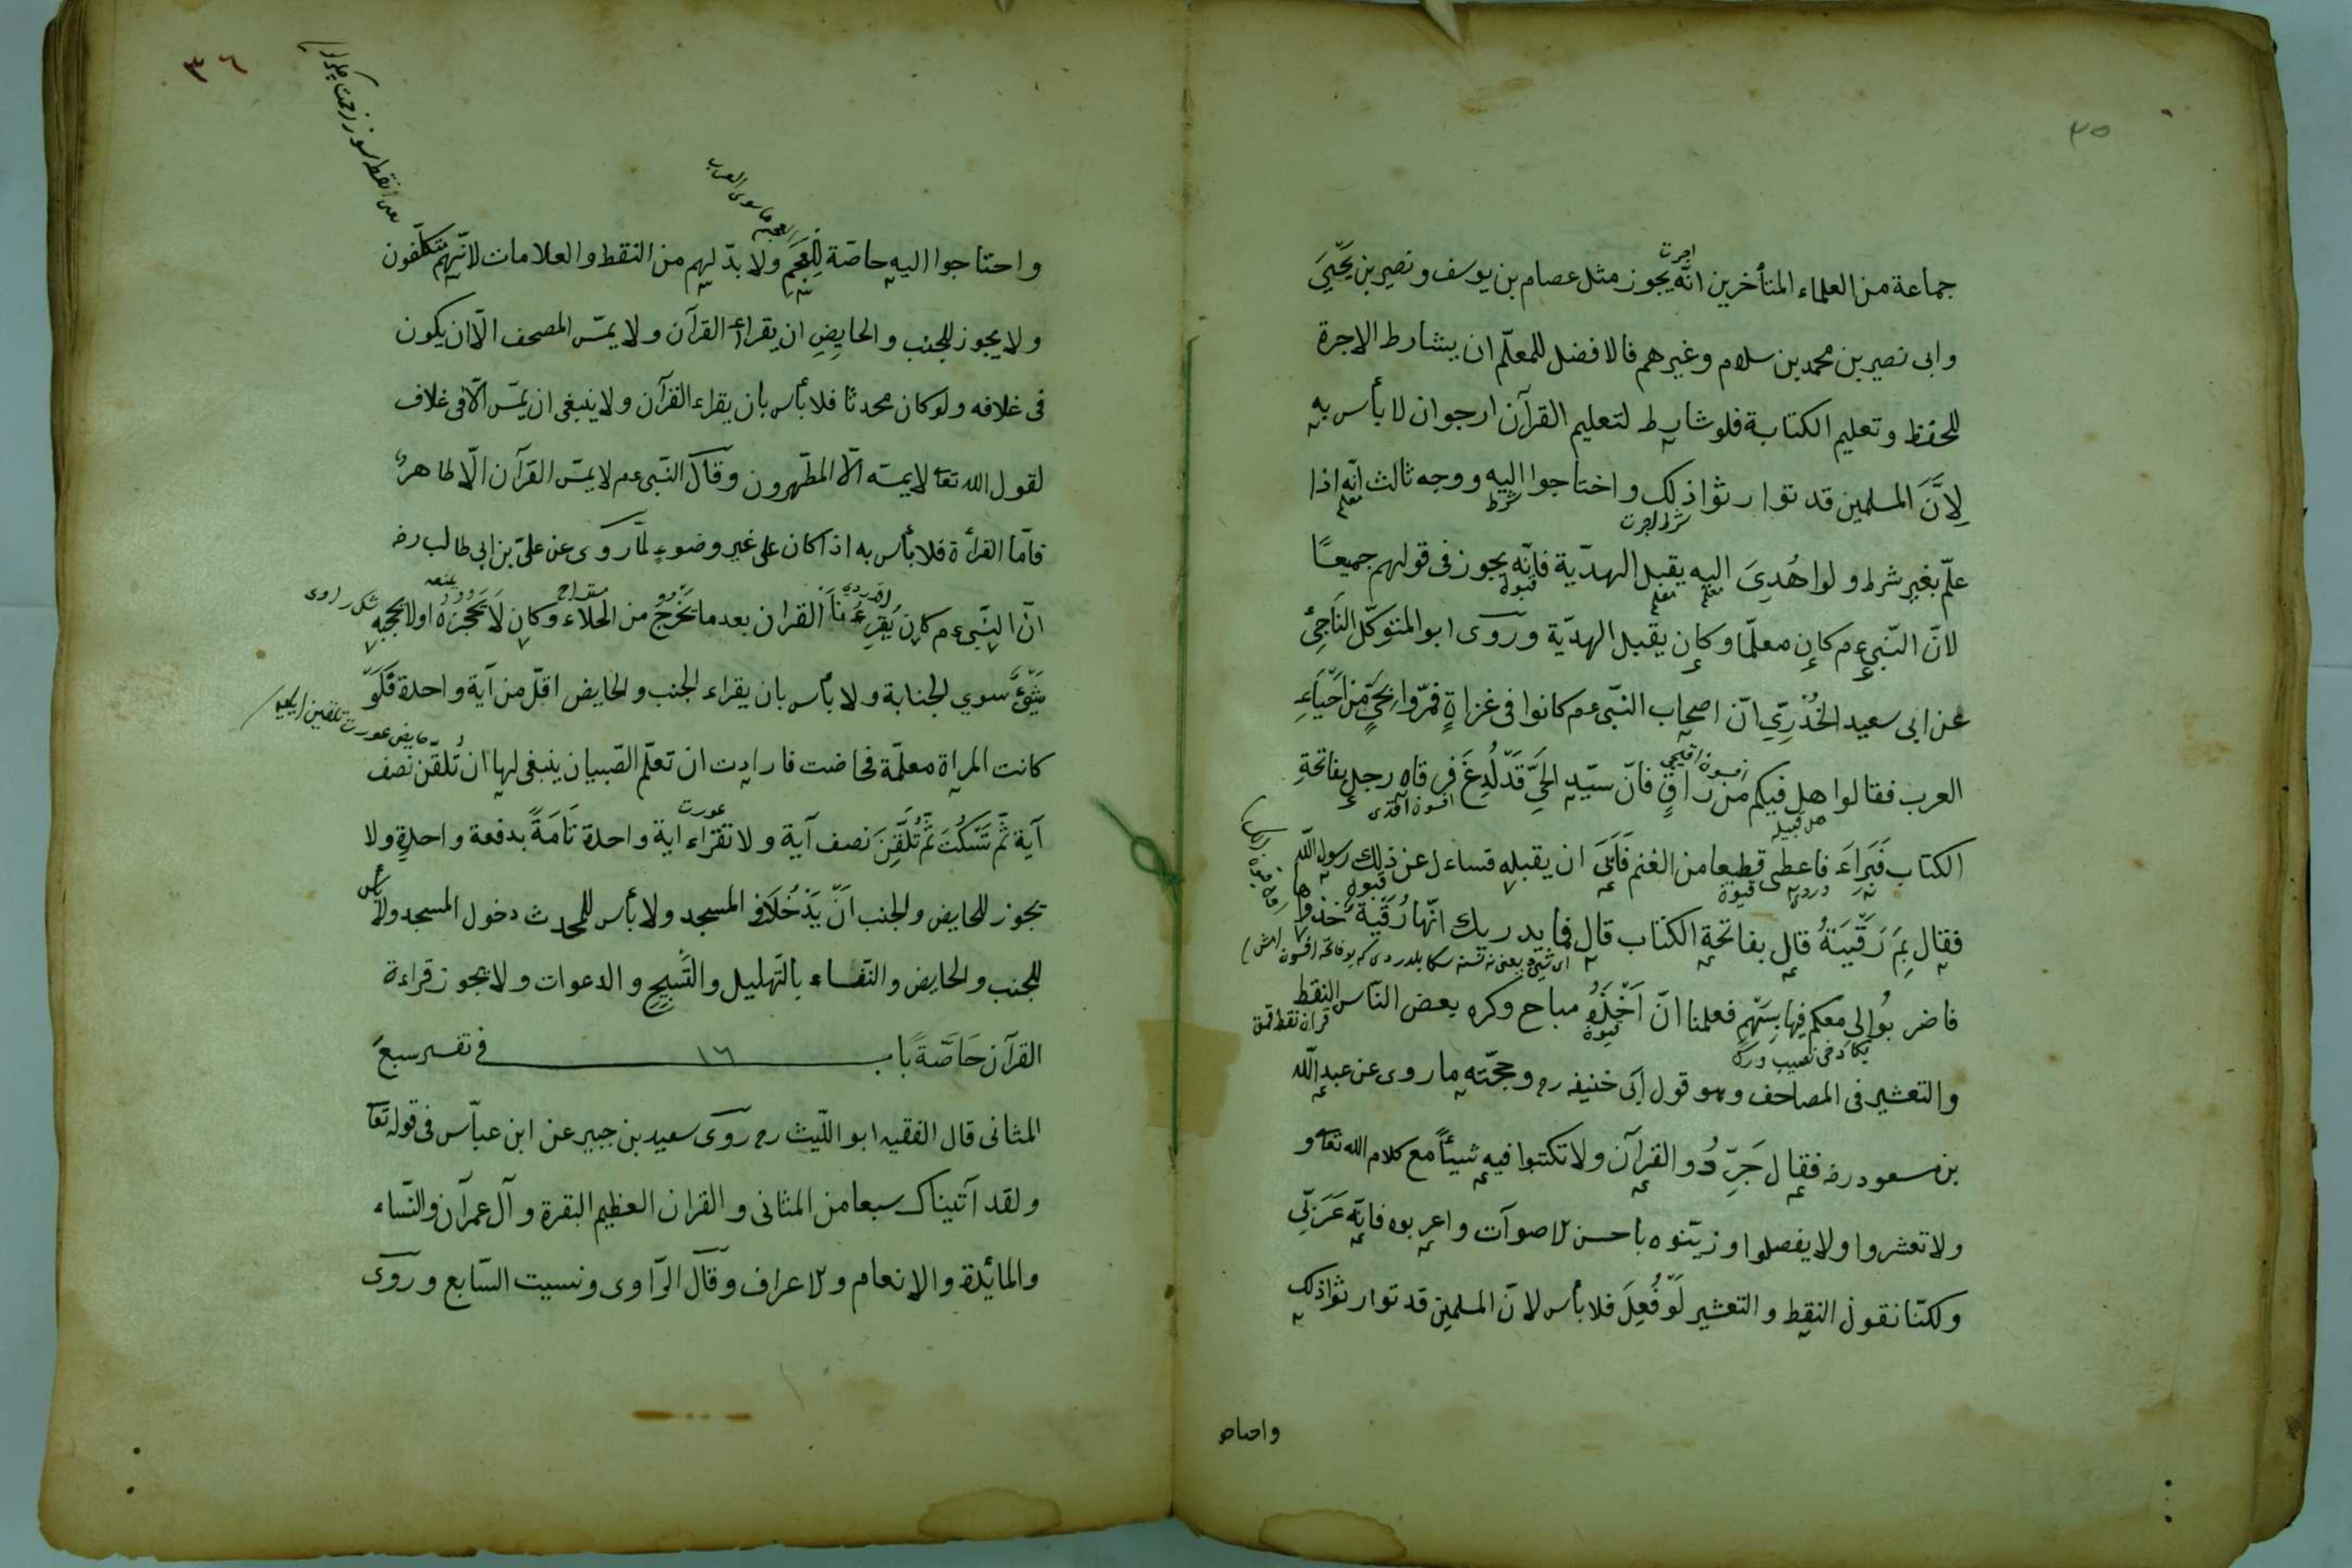 ٣٥
اجرت
جماعة من العلماء المتأخرين انّه يجوز مثل عصام بن يوسف ونصير بن يَحْيَى
وابى نصير بن محمد بن سلام وغيرهم فالافضل للمعلّم ان يشارط الاجرة
للحفظ وتعليم الكتابة فلو شارط لتعليم القرآن ارجو ان لا بأس به
لِاَنَّ المسلمين قد توارثوا ذلك واحتاجوا اليه ووجه ثالث انّه اذا
شرط اجرت
شرط
معلم
علّم بغير شرط ولو اهُدِىَ اليه يقبل الهديّة فانّه يجوز فى قولهم جميعًا
معلم
معلم
قبول
لانّ النّبىّ عم كان معلّما وكان يقبل الهديّة وروى ابو المتوكّل النّاجىّ
عن ابى سعيد الخُدْرِىّ انّ اصحاب النّبى عم كانوا فى غزاةٍ فمرّوا بِحَىٍّ مّن اَحْيَاءِ
العرب فقالوا هل فيكم من راقٍ فانّ سيّد الحَىّ قَدْ لُدِغَ فرقاه رجل بفاتحةِ
الكتاب فَبَرِاءَ فاعطى قطيعا من الغنم فَاَبَى ان يقبله فساءل عن ذلك رسول اللّه
فقال بِمَ رَقَيْتَهُ قال بفاتحة الكتاب قال فما يدريك انّها رُقْيَة خذوها
فاضربُوا لى معكم فيها بِسَهْمٍ فعلمنا انّ اَخْذَهُ مباح وكره بعض النّاس النقط
والتعشير فى المصاحف وهو قول ابى حنيفه رح وحجّته ما روى عن عبد اللّه
بن مسعود رضه فقال جَرِّدُوا القرآن ولا تكتبوا فيه شيئاً مع كلام الله تعا و
ولا تعشروا ولا يفصلوا وزيّنوه باحسن الاصوات واعربوه فانّه عَرَبِىّ
ولكنّا نقول النقط والتعشير لَوْ فُعِلَ فلا بأس لانّ المسلمين قد توارثوا ذلك
واحتاجوا
٣٦
العجم ما سوى العرب
واحتاجوا اليه خاصّة لِلْعَجَمِ ولا بدّ لهم من النقط والعلامات لانّهم متكلّفون
ولا يجوز للجنب والحايِضِ ان يقراء القرآن ولا يمسّ المصحف الّا ان يكون
فى غلافه ولو كان محدثا فلا بأس بان يقراء القرآن ولا ينبغى ان يمسّ الّا فى غلاف
لقول الله تعا لا يمسّه الّا المطّهرون وقال النّبى عم لا يمسّ القرآن الّا طاهر
فامّا القراءة فلا بأس به اذا كان على غير وضوءٍ لمّا روى عن علىّ بن ابى طالب رضه
انّ النّبىّ عم كان يُقْرِءُنَا القرآن بعد ما يَخْرُجُ من الخلاء وكان لَا يَحْجُزُهُ او لا يحجبه
شك راوى
شَىْءٌ سوي الجنابة ولا بأس بان يقراء الجنب والحايض اقلّ من آية واحدة فَلَوْ
كانت المراة معلمّة فحاضت فارادت ان تعلّم الصّبيان ينبغى لها ان تُلَقّن نصف
آية ثُمَّ تَسْكُتَ ثُمَّ تُلَقِّنَ نصف آية ولا تقراء اية واحدة تَامَةً بدفعة واحدةٍ ولا
عورت
يجوز للحايض والجنب اَنْ يَدْخُلَا فى المسجد ولا بأس للمحدث دخول المسجد ولا بأس
للجنب والحايض والنّفساء بالتّهليل والتّسبيح والدعوات ولا يجوز قراءة
القرآن خَاصَّةً باب ١٦ فى تفسير سبع
المثانى قال الفقيه ابو اللّيث رح روى سعيد بن جبير عن ابن عبّاس فى قوله تعا
ولقد آتيناك سبعا من المثانى والقران العظيم البقرة وآل عمرآن والنّساء
والمائدة والانعام والاعراف وقال الرّاوى ونسيت السّابع وروى